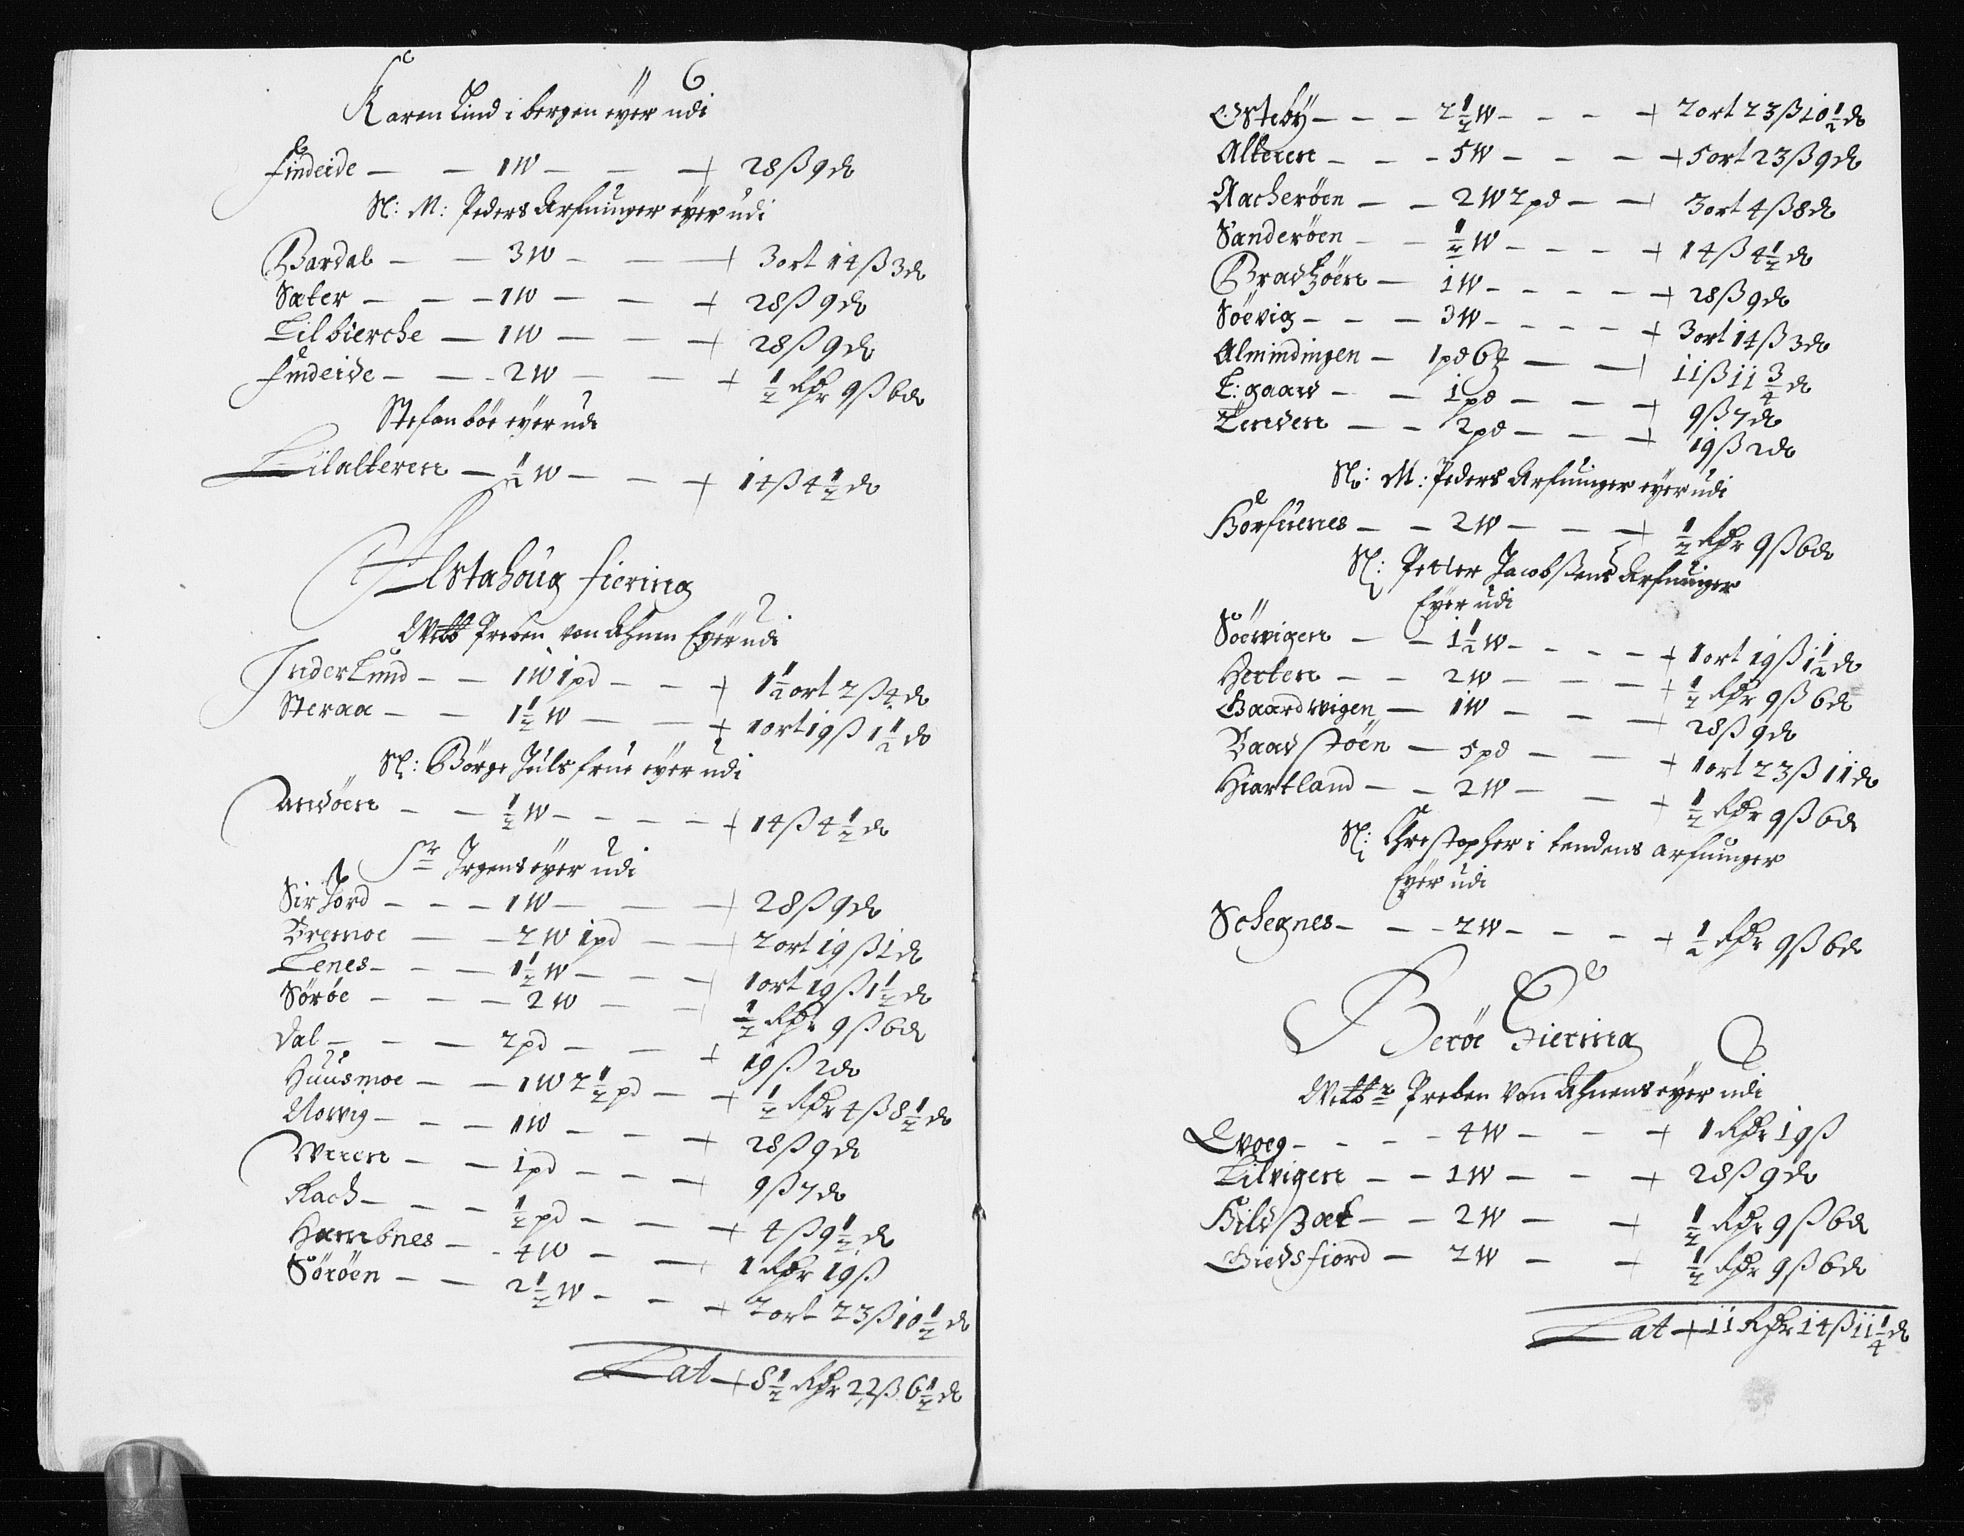 Karen Lind i bergen eyer udi
Findeide — — 1 W — — + 28 ß 9 d
Sl: M: Peders Arfuinger eyer udi
Bardal — — 3 W — — + 3 ort 14 ß 3 d
Sæter — — 1 W — — + 28 ß 9 d
Lilbierche — 1 W — — + 28 ß 9 d
Findeide — — 2 W — — + ½ Rdr 9 ß 6 d
Stefan böe eyer udi
Lilalteren — ½ W — — + 14 ß 4½ d
Alstahoug fiering
Preben von Ahnen Eyer udi
Inderlund — — 1 W 1 pd — — + 1½ ort 2 ß 4 d
Steraa — — 1½ W — — + 1 ort 19 ß 1½ d
Sl: Börge Juls frue eyer udi
Andöen — — ½ W — — — + 14 ß 4½ d
Sr Irgens eyer udi
Siriord — — — 1 W — — + 28 ß 9 d
Bremoe — — 2 W 1 pd — + 2 ort 19 ß 1 d
Lenes — — — 1½ W — — + 1 ort 19 ß 1½ d
Söröe — — — 2 W — — + ½ Rdr 9 ß 6 d
Dal — — — 2 pd — — + 19 ß 2 d
Huusmoe — — 1 W 2½ pd — + ½ Rdr 4 ß 8½ d
— — — 1 W — — + 28 ß 9 d
Weren — — 1 pd — — + 9 ß 7 d
Rach — — — ½ pd — — + 4 ß 9½ d
Hambnes — — 4 W — — + 1 Rdr 19 ß
Söröen — — 2½ W — — + 2 ort 23 ß 10½ d
Lat + 8½ Rdr 22 ß 6½ d
Østeby — — — 2½ W — — — + 2 ort 23 ß 10½ d
Alteren — — — 5 W — — — + 5 ort 23 ß 9 d
Aacheröen — — 2 W 2 pd — — + 3 ort 4 ß 8 d
Sanderöen — — ½ W — — — + 14 ß 4½ d
— 1 W — — — — + 28 ß 9 d
Söevig — — — 3 W — — — — + 3 ort 14 ß 3 d
Almindingen — 1 pd 6 — — + 11 ß 11¾ d
L: gaard — — 1 pd — — — + 9 ß 7 d
Tenden — — 2 pd — — — + 19 ß 2 d
Sl: M: Peders Arfuinger eyer udi
Horfuenes — — 2 W — — — + ½ Rdr 9 ß 6 d
Sl: Petter Jacobßens Arfuinger
Eyer udi
Söevigen — — 1½ W — — — — + 1 ort 19 ß 1½ d
Herten — — 2 W — — — + ½ Rdr 9 ß 6 d
Gaardwigen — 1 W — — — + 28 ß 9 d
Baadstöen — 5 pd — — — + 1 ort 23 ß 11 d
Hiartland — — 2 W — — — + ½ Rdr 9 ß 6 d
Sl: Christopher i tendens arfuinger
Eyer udi
Schegnes — — — 2 W — — — — + ½ Rdr 9 ß 6 d
Heröe Fiering
Preben von Ahnens eyer udi
— — — — 4 W — — + 1 Rdr 19 ß
Lilvigen — — 1 W — — + 28 ß 9 d
Hildßæt — — 2 W — + ½ Rdr 9 ß 6 d
Giedsfiord — 2 W — + ½ Rdr 9 ß 6 d
Lat + 11 Rdr 14 ß 11¼ d